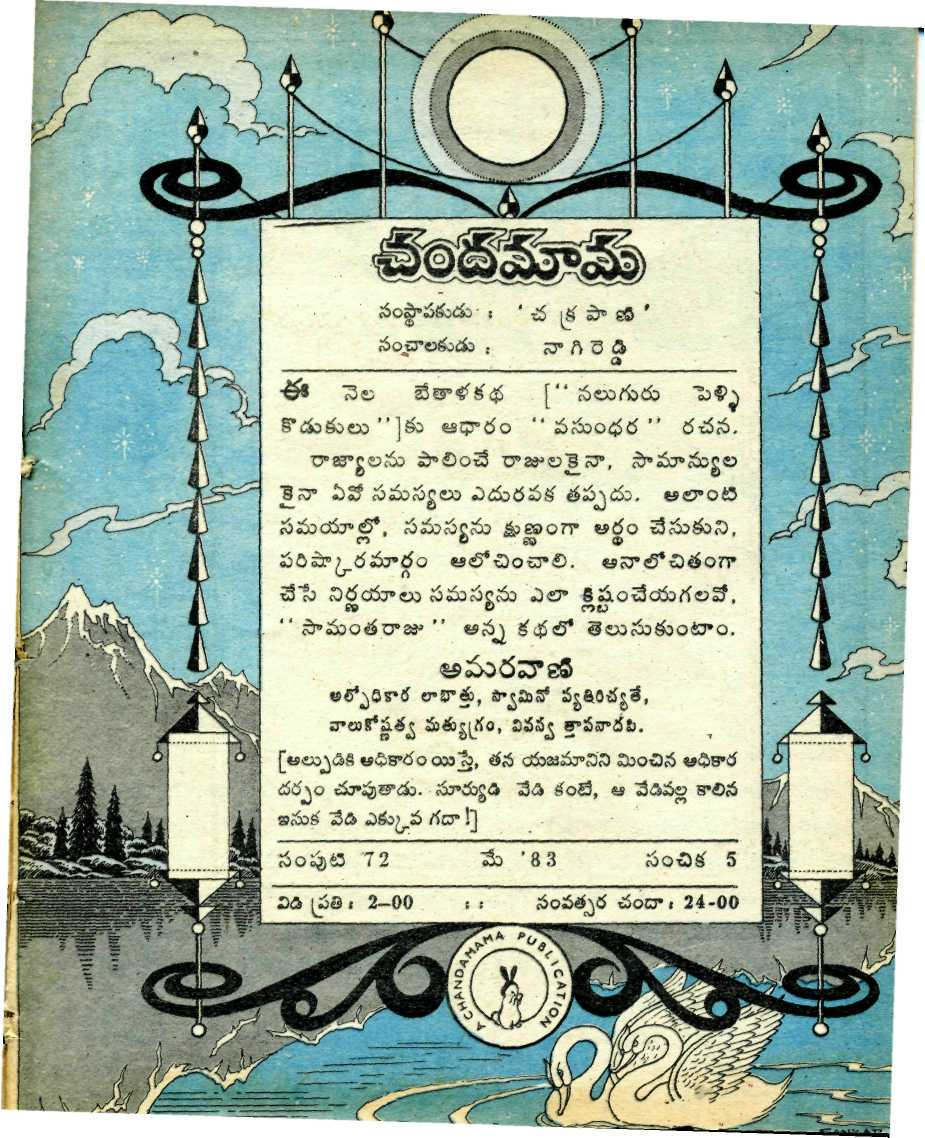 చందమామ
సంస్థాపకుడు : ' చ క్ర పా ణి '
సంచాలకుడు : నా గి రె డ్డి
ఈ నెల బేతాళకథ [" నలుగురు పెళ్ళి
కొడుకులు "]కు ఆధారం " వసుంధర " రచన.
రాజ్యాలను పాలించే రాజులకైనా, సామాన్యుల
కైనా ఏవో సమస్యలు ఎదురవక తప్పదు. అలాంటి
సమయాల్లో, సమస్యను క్షుణ్ణంగా అర్థం చేసుకుని,
పరిష్కారమార్గం ఆలోచించాలి. అనాలోచితంగా
చేసే నిర్ణయాలు సమస్యను ఎలా క్లిష్టంచేయగలవో,
" సామంతరాజు " అన్న కథలో తెలుసుకుంటాం.
అమరవాణి
అల్పోధికార లాభాత్తు, స్వామినో వ్యతిరిచ్యతే,
వాలుకోష్ణత్వ మత్యుగ్రం, వివస్వ త్తాపనాదపి.
[అల్పుడికి అధికారంయిస్తే, తన యజమానిని మించిన అధికార
దర్పం చూపుతాడు. సూర్యుడి వేడి కంటే, ఆ వేడివల్ల కాలిన
ఇసుక వేడి ఎక్కువ గదా !]
సంపుటి 72 మే '83 సంచిక 5
విడి ప్రతి : 2—00 : : సంవత్సర చందా : 24-00
A CHANDAMAMA PUBLICATION